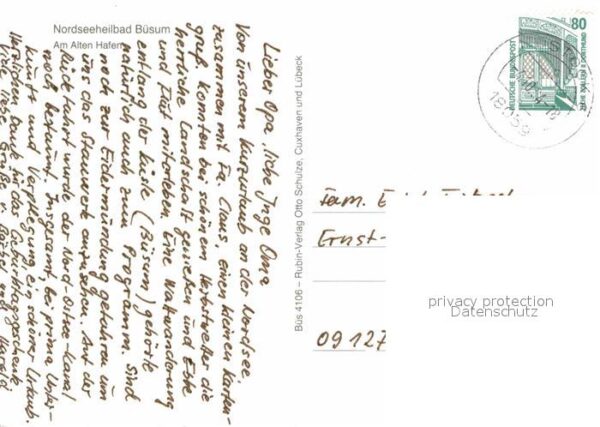 Nordseeheilbad Büsum
Am Alten Hafen
Lieber Opa, liebe Inge Oma
Von unserem Kurzurlaub an der Nordsee,
zusammen mit Fa. Claus, einen kleinen Karten-
gruß. Konnten bei schönem Herbstwetter die
herrliche Landschaft genießen und Ebbe
und Flut miterleben. Eine Wattwanderung
entlang der Küste (Büsum) gehörte
natürlich auch zum Programm. Sind
noch zur Eidermündung gefahren um
uns das Stauwerk anzusehen. Auf der
Rückfahrt wurde der Nord-Ostsee-Kanal
noch bestaunt. Insgesamt, bei prima Unter-
kunft und Verpflegung ein schöner Urlaub.
Herzlichen Dank für das Geburtstagsgeschenk
Viele liebe Grüße v. Bärbel u. Harald
Büs 4106 – Rubin-Verlag Otto Schulze, Cuxhaven und Lübeck
80
DEUTSCHE BUNDESPOST
ZECHE ZOLLERN II DORTMUND
18059
Fam.
Ernst-
09127
privacy protection
Datenschutz